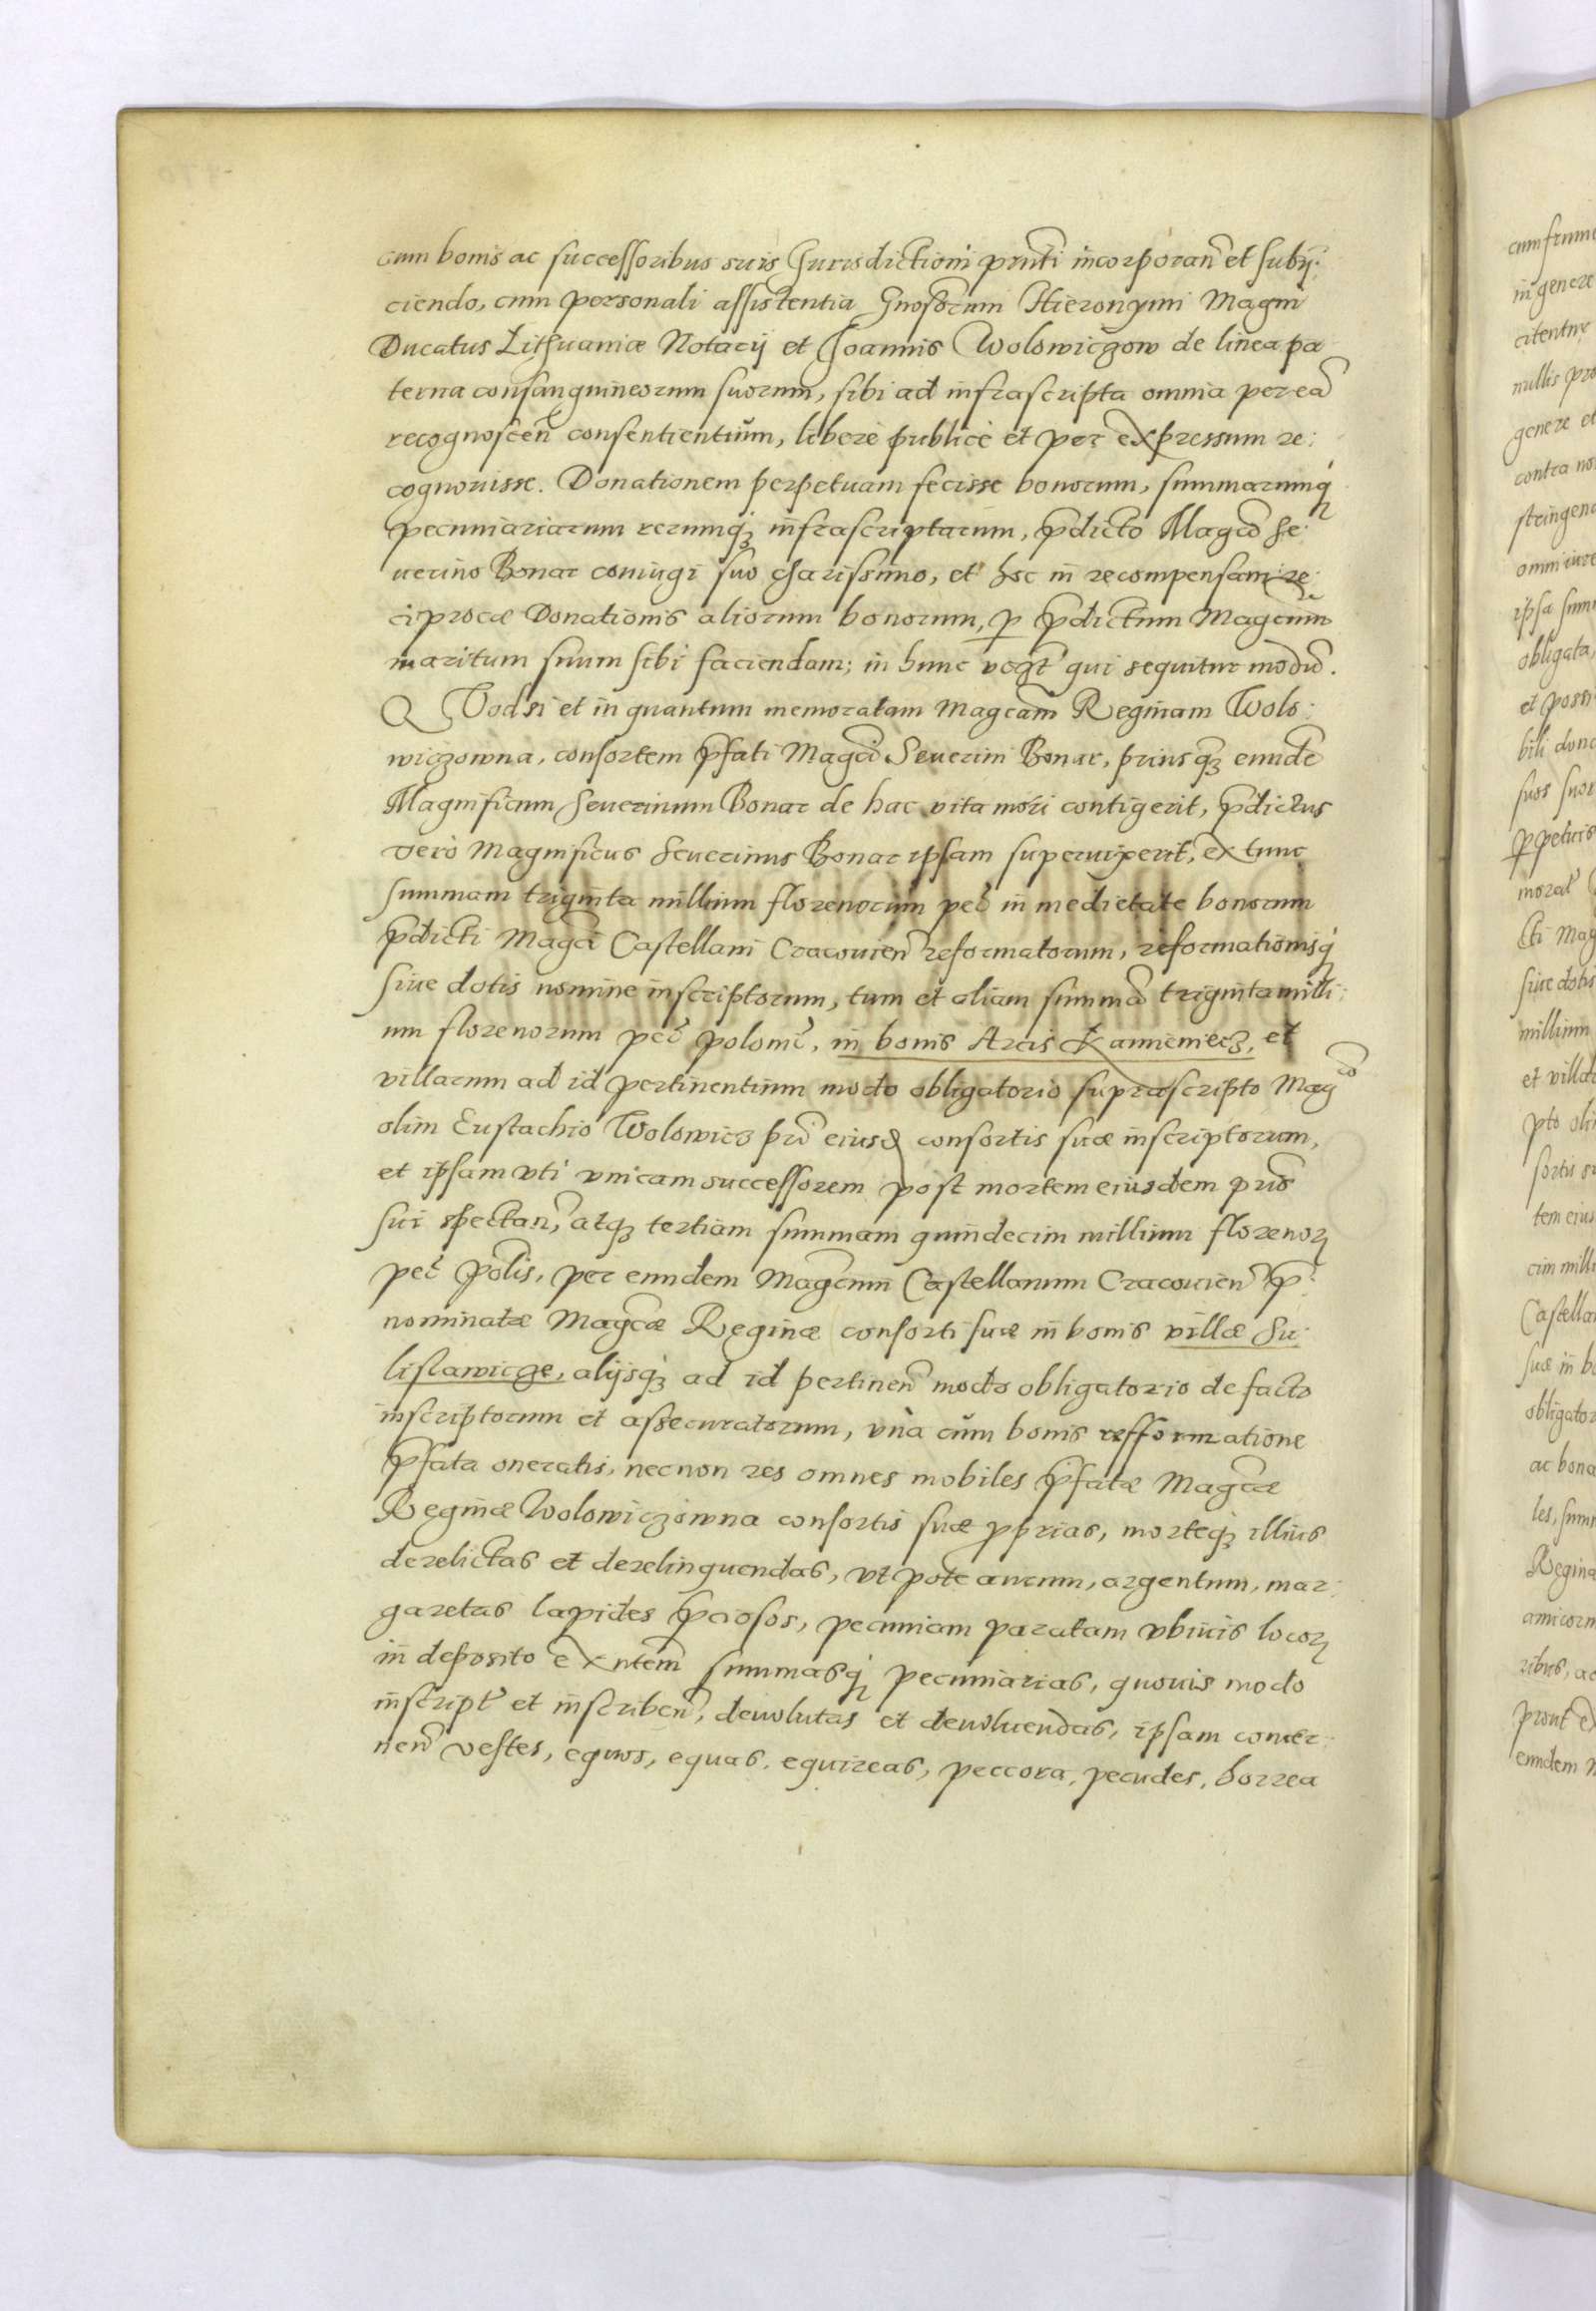 cum bonis ac successoribus suis Jurisdictioni pñti incorporañ et subij:
ciendo, cum personali assistentia Gnosorum Hieronymi Magni
Ducatus Lithuaniæ Notarij et Joannis Wolowiczow de linea pa
terna consanguineorum suorum, sibi ad infrascripta omnia per eã
recognosceñ consentientium, liberè publicè et per expressum re:
cognouisse. Donationem perpetuam fecisse bonorum, summarumq́
pecuniariarum rerumq́ꝫ infrascriptarum, p̃dicto Magco Se:
uerino Bonar coniugi suo charissimo, et hoc in recompensam re:
ciprocæ Donationis aliorum bonorum, ꝑ p̃dictum Magcum
maritum suum sibi faciendam; in hunc qui sequitur modũ.
QVod si et in quantum memoratam Magcam Reginam Wolo:
wiczowna, consortem p̃fati Magci Seuerini Bonar, priusq̃ꝫ eundẽ
Magnificum Seuerinum Bonar de hac vita mori contigerit, p̃dictus
verò Magnificus Seuerinus Bonar ipsam superuixerit, ex tunc
summam triginta millium florenorum pec̃ in medietate bonorum
p̃dicti Magci Castellani Cracouieñ reformatorum, reformationisq́
siue dotis nomine inscriptorum, tum et aliam summã triginta milli:
um florenorum pec̃ polonic̃, in bonis Arcis Kamieniecz, et
villarum ad id pertinentium modo obligatorio suprascripto Magco
olim Eustachio Wolowicz pri eiusd consortis suæ inscriptorum,
et ipsam vti vnicam successorem post mortem eiusdem pris
sui spectañ, atqꝫ tertiam summam quindecim millium florenoꝝ
pec̃ polis, per eundem Magcum Castellanum Cracouieñ p̃:
nominatæ Magcæ Reginæ consorti suæ in bonis villæ Su:
lislawicze, alijsq́ꝫ ad id pertineñ modo obligatorio de facto
inscriptorum et assecuratorum, vnà cum bonis refformatione
p̃fata oneratis, necnon res omnes mobiles p̃fatæ Magcæ
Reginæ Wolowiczowna consortis suæ ꝓprias, morteq́ꝫ illius
derelictas et derelinquendas, vt pote aurum, argentum, mar:
garetas lapides p̃ciosos, pecuniam paratam vbiuis locoꝝ
in deposito exñtem summasq́ pecuniarias, quouis modo
inscript̃ et inscribeñ, deuolutas et deuoluendas, ipsam concer:
neñ vestes, equos, equas, equireas, peccora, pecudes, horrea
cum frume
in genere
citentur
nullis pro
genere et
contra no
stringen
omni iure
ipsa sum
obligata,
et poss
bili don
suos suor
ꝑpetuis
morat̃
cti Mag
siue dotis
millium
et villar
pto oli
sortis s
tem eius
cim milli
Castella
suæ in b
obligator
ac bona
les, sum
Regina
amicoru
ribus, ac
prout e
eundem